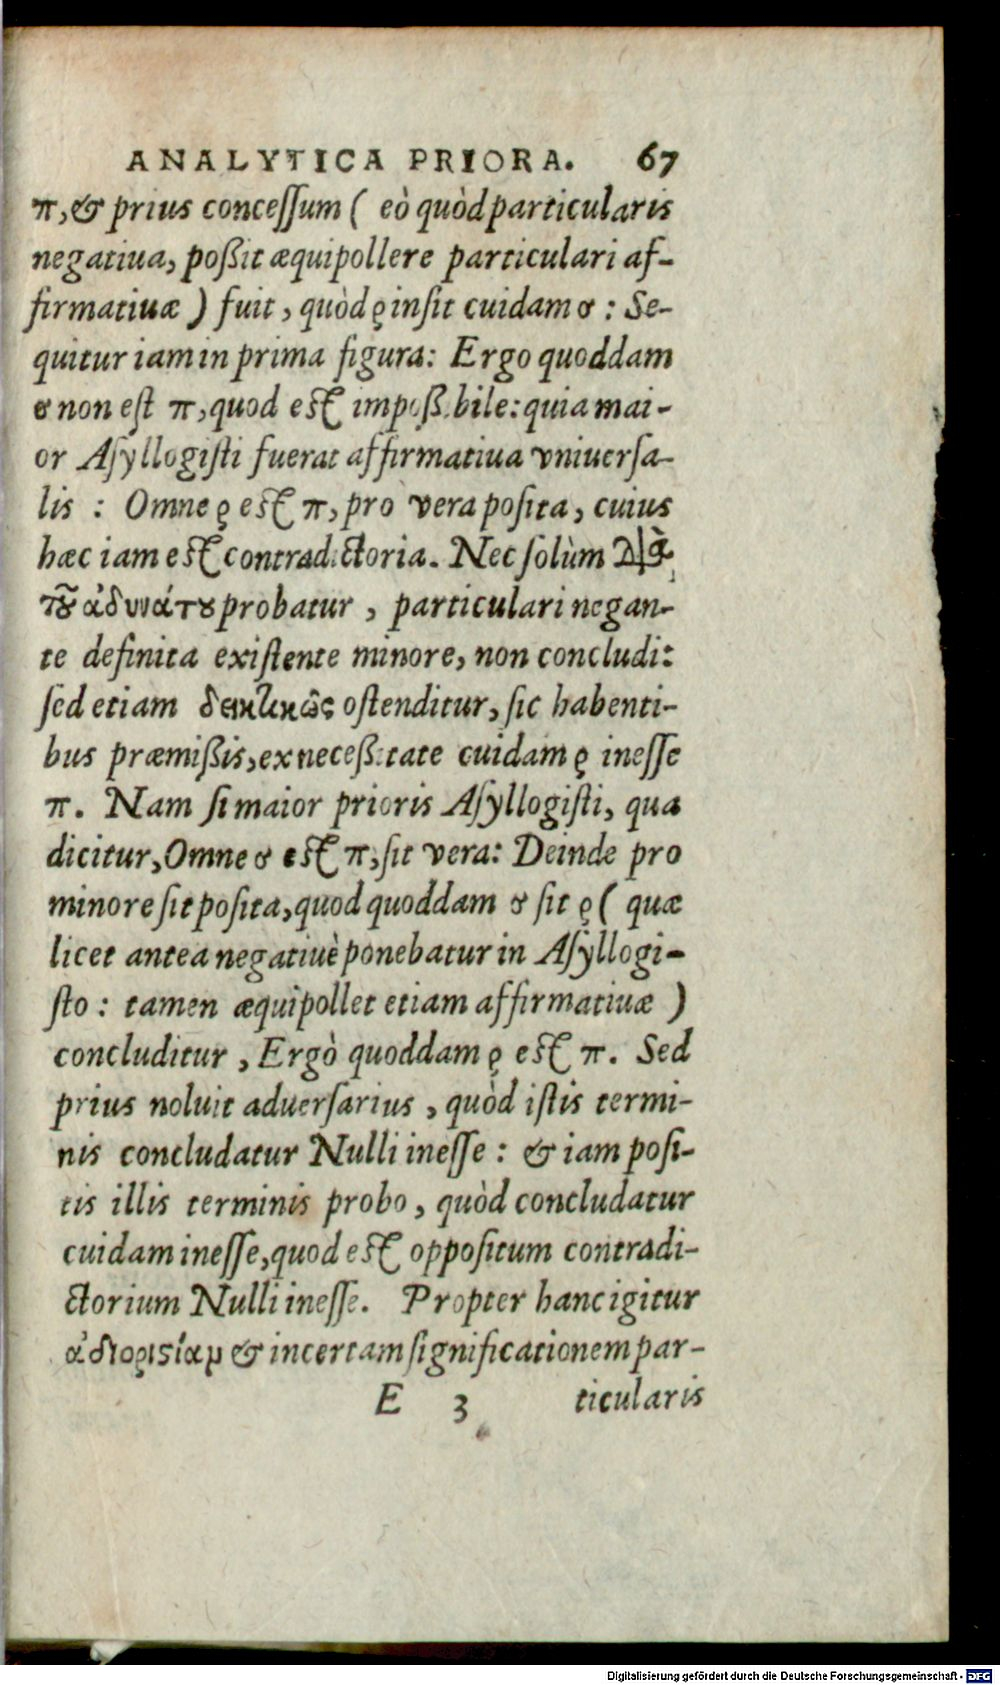 ANALYTICA PRIORA. 67
π, & prius concessum ( eò quòd particularis
negatiua, poßit æquipollere particulari af-
firmatiuæ ) fuit, quòd ρ insit cuidam σ : Se-
quitur iam in prima figura: Ergo quoddam
σ non est π, quod est impoßibile: quia mai-
or Asyllogisti fuerat affirmatiua vniuersa-
lis : Omne ρ est π, pro vera posita, cuius
hæc iam est contradictoria. Nec solùm διὰ
τοῦ ἀδυνάτου probatur, particulari negan-
te definita existente minore, non concludi:
sed etiam δεικτικῶς ostenditur, sic habenti-
bus præmißis, ex neceßitate cuidam ρ inesse
π. Nam si maior prioris Asyllogisti, qua
dicitur, Omne σ est π, sit vera: Deinde pro
minore sit posita, quod quoddam σ sit ρ ( quæ
licet antea negatiuè ponebatur in Asyllogi-
sto : tamen æquipollet etiam affirmatiuæ )
concluditur, Ergò quoddam ρ est π. Sed
prius noluit aduersarius, quòd istis termi-
nis concludatur Nulli inesse : & iam posi-
tis illis terminis probo, quòd concludatur
cuidam inesse, quod est oppositum contradi-
ctorium Nulli inesse. Propter hanc igitur
ἀδιοριστίαν & incertam significationem par-
E 3 ticularis
Digitalisierung gefördert durch die Deutsche Forschungsgemeinschaft - DFG